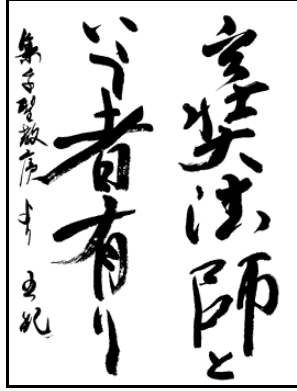 玄奘法師と
いう者有り
集字聖教序より 玉妃